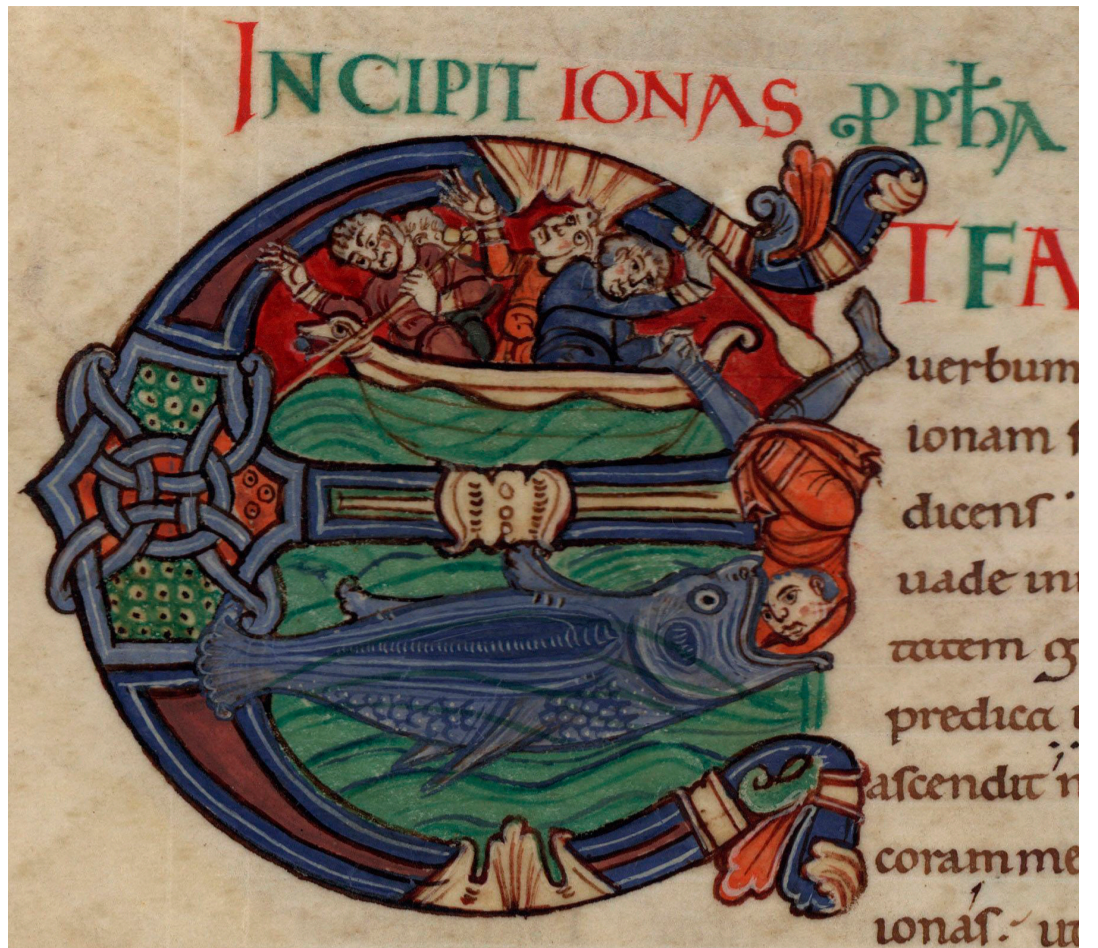 INCIPIT IONAS PPħA
E T FA
uerbum
ionam ſ
dicenſ
uade in
tatem g
predica i
aſcendit
coram me
ionaſ. ut